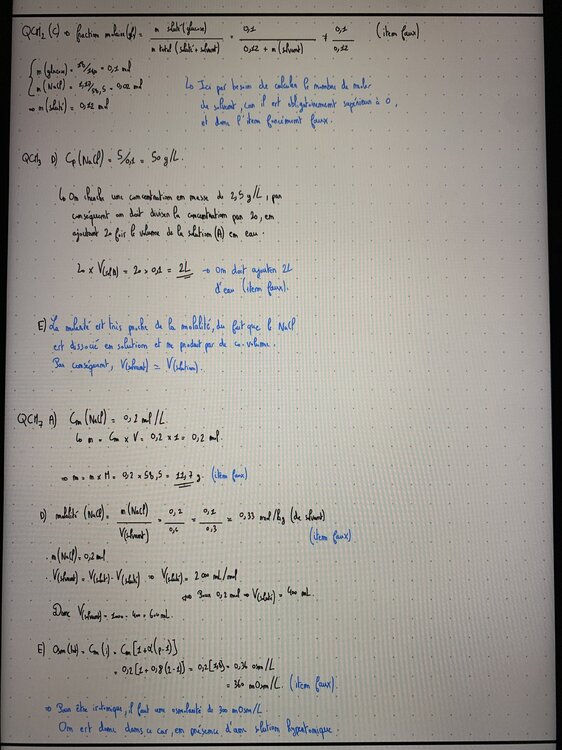 QCM2 (C) => fraction molaire (gl) = n soluté (glucose) / n total (soluté + solvant) = 0,1 / 0,12 + n (solvant) ≠ 0,1 / 0,12 (item faux)
{ n (glucose) = 18/180 = 0,1 mol
{ n (NaCl) = 1,17/58,5 = 0,02 mol
=> n (soluté) = 0,12 mol
↳ Ici pas besoin de calculer le nombre de moles
de solvant, car il est obligatoirement supérieur à 0,
et donc l'item forcément faux.
QCM3 D) Cp (NaCl) = 5/0,1 = 50 g/L.
↳ On cherche une concentration en masse de 2,5 g/L, par
conséquent on doit diviser la concentration par 20, en
ajoutant 20 fois le volume de la solution (A) en eau.
20 x V(sol A) = 20 x 0,1 = 2L → On doit ajouter 2L
d'eau (item faux).
E) La molarité est très proche de la molalité, du fait que le NaCl
est dissocié en solution et ne produit pas de co-volume.
Par conséquent, V(solvant) ≃ V(solution).
QCM7 A) Cm (NaCl) = 0,2 mol/L.
↳ n = Cm x V = 0,2 x 1 = 0,2 mol.
=> m = n x M = 0,2 x 58,5 = 11,7 g. (item faux)
D) molalité (NaCl) = n (NaCl) / V(solvant) = 0,2 / 0,6 = 0,1 / 0,3 = 0,33 mol/kg (de solvant)
(item faux)
• n (NaCl) = 0,2 mol
• V(solvant) = V(soluté) - V(soluté) => V(soluté) = 2000 mL/mol
=> Pour 0,2 mol => V(soluté) = 400 mL.
Donc V(solvant) = 1000 - 400 = 600 mL.
E) Osm (W) = Cm (i) = Cm [1 + α (p - 1)]
= 0,2 [1 + 0,8 (2 - 1)] = 0,2 [1,8] = 0,36 osm/L
= 360 mOsm/L. (item faux).
=> Pour être isotonique, il faut une osmolarité de 300 mOsm/L.
On est donc dans ce cas, en présence d'une solution hypertonique